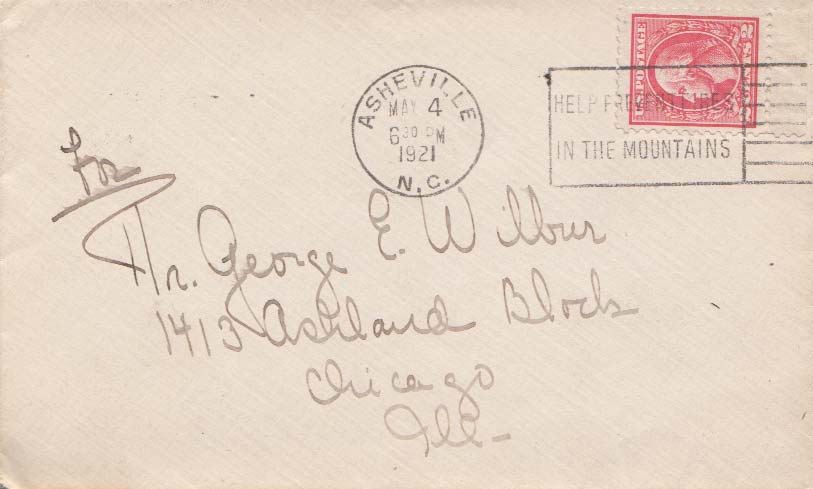 ASHEVILLE
MAY 4
6 30 PM
1921
N.C.
U.S. POSTAGE
HELP PREVENT FIRES
IN THE MOUNTAINS
For
Mr. George E. Wilbur
1413 Ashland Block
Chicago
Ill-